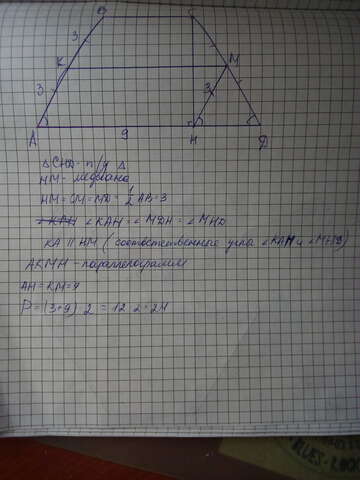 B C
3
K M
3 3
A 9 H D
△CHD - п/у △
HM - медиана
HM = CM = MD = 1/2 AB = 3
∠KAH = ∠MDH = ∠MHD
KA || HM (соответственные углы ∠KAH и ∠MHD)
AKMH - параллелограмм
AH = KM = 9
P = (3+9) · 2 = 12 · 2 = 24
BLUES - ROCK